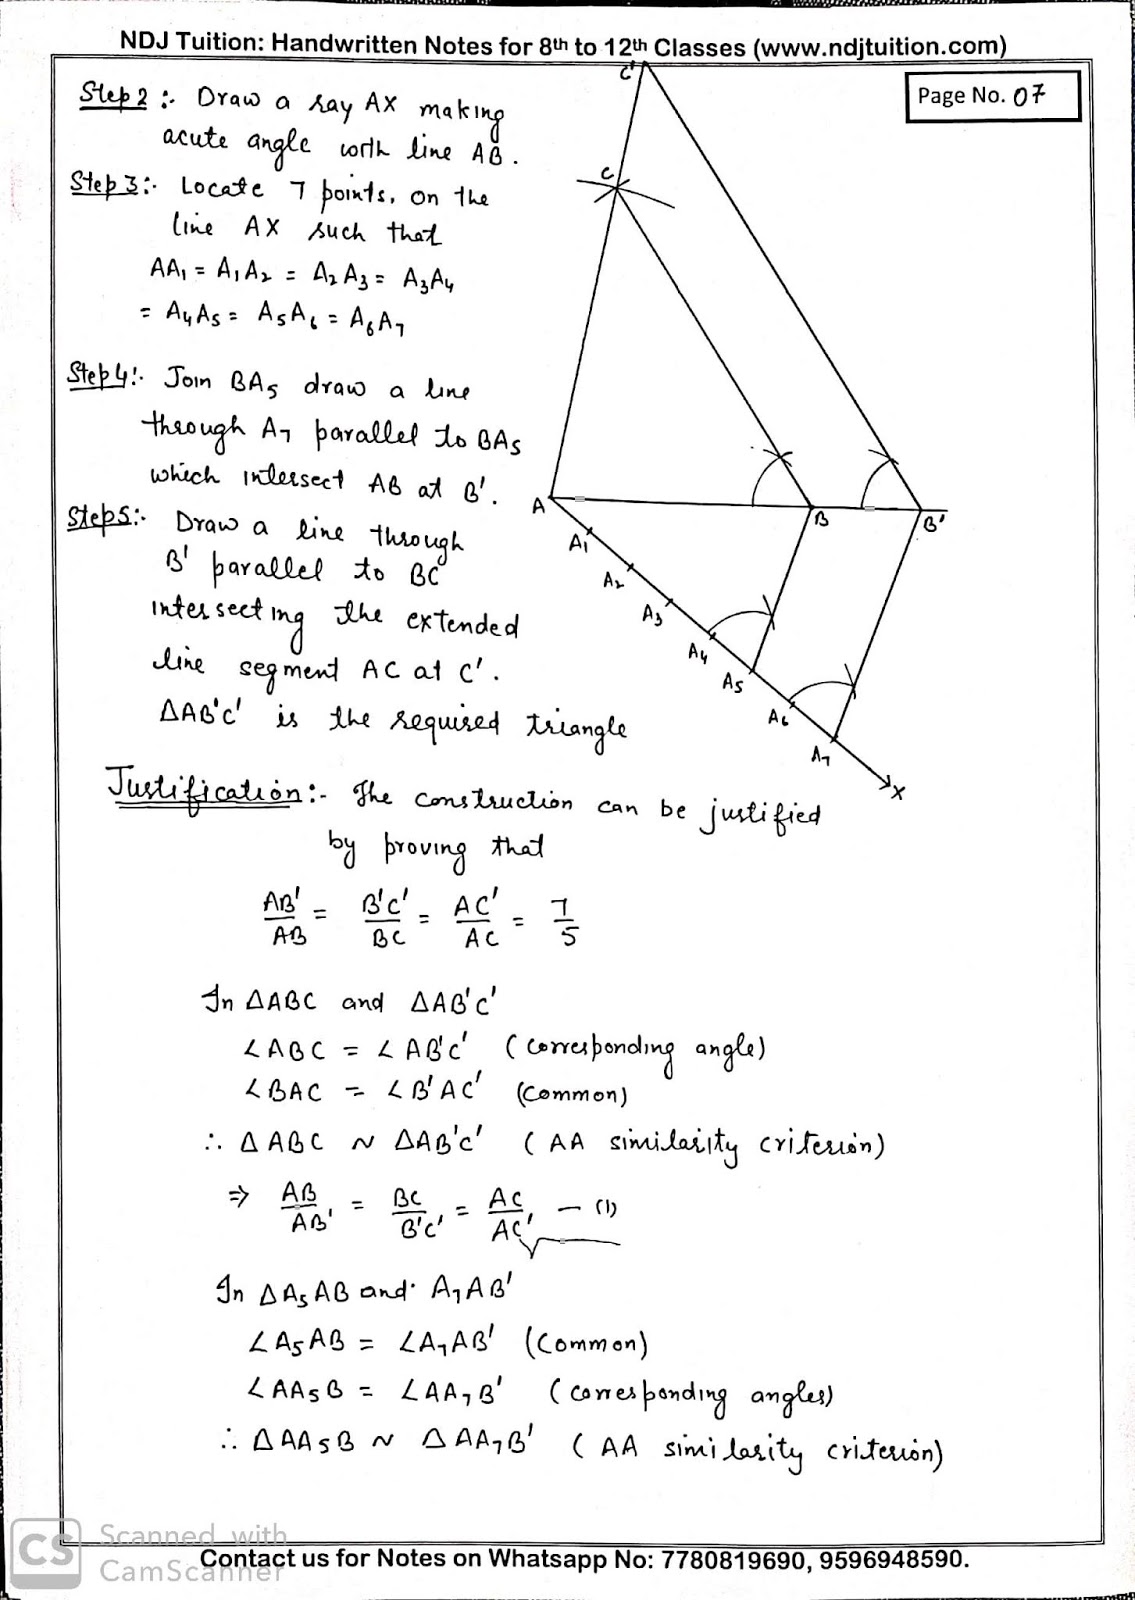 NDJ Tuition: Handwritten Notes for 8th to 12th Classes (www.ndjtuition.com)
Page No. 07
Step 2 :- Draw a ray AX making
acute angle with line AB.
Step 3:- Locate 7 points, on the
line AX such that
AA₁ = A₁A₂ = A₂A₃ = A₃A₄
= A₄A₅ = A₅A₆ = A₆A₇
Step 4:- Join BA₅ draw a line
through A₇ parallel to BA₅
which intersect AB at B'.
Step5:- Draw a line through
B' parallel to BC
intersecting the extended
line segment AC at C'.
ΔAB'C' is the required triangle
C'
C
A
B
B'
A₁
A₂
A₃
A₄
A₅
A₆
A₇
X
Justification:- The construction can be justified
by proving that
AB'/AB = B'C'/BC = AC'/AC = 7/5
In ΔABC and ΔAB'C'
∠ABC = ∠AB'C' (corresponding angle)
∠BAC = ∠B'AC' (Common)
∴ ΔABC ~ ΔAB'C' (AA similarity criterion)
⇒ AB/AB' = BC/B'C' = AC/AC' — (1)
In ΔA₅AB and A₇AB'
∠A₅AB = ∠A₇AB' (Common)
∠AA₅B = ∠AA₇B' (corresponding angles)
∴ ΔAA₅B ~ ΔAA₇B' (AA similarity criterion)
CS Scanned with
CamScanner
Contact us for Notes on Whatsapp No: 7780819690, 9596948590.